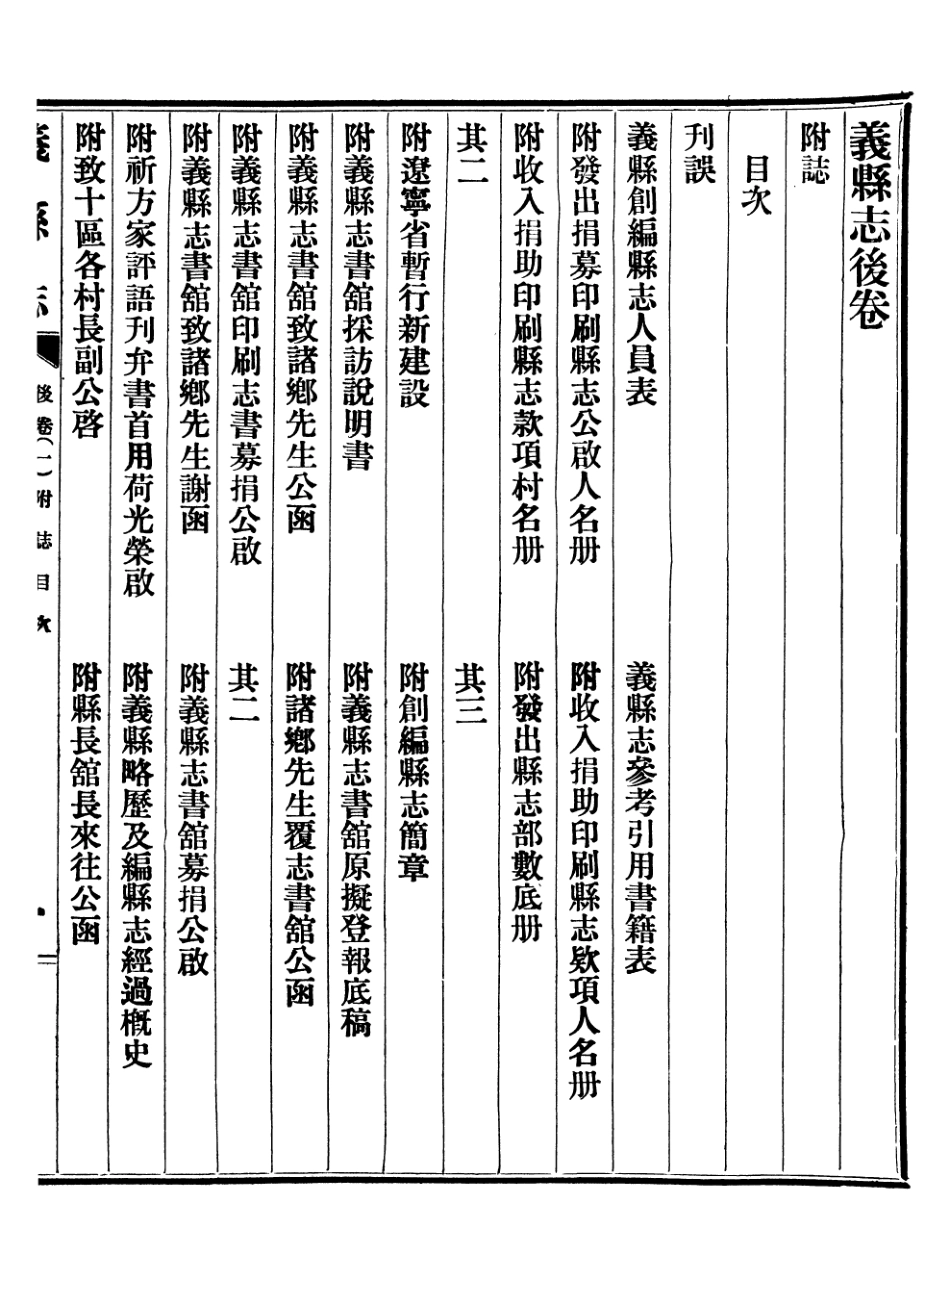 義縣志後卷
附誌
目次
刊誤
義縣創編縣志人員表　義縣志參考引用書籍表
附發出捐募印刷縣志公啟人名册　附收入捐助印刷縣志欵項人名册
附收入捐助印刷縣志款項村名册　附發出縣志部數底册
其二　其三
附遼寧省暫行新建設　附創編縣志簡章
附義縣志書舘採訪說明書　附義縣志書舘原擬登報底稿
附義縣志書舘致諸鄉先生公函　附諸鄉先生覆志書舘公函
附義縣志書舘印刷志書募捐公啟　其二
附義縣志書舘致諸鄉先生謝函　附義縣志書舘募捐公啟
附祈方家評語刊弁書首用荷光榮啟　附義縣略歷及編縣志經過槪史
附致十區各村長副公啓　附縣長舘長來往公函
義縣志　後卷(一)附誌目次